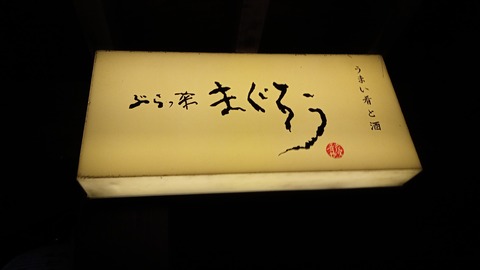 うまい肴と酒
ぶらっ菜
まぐろう